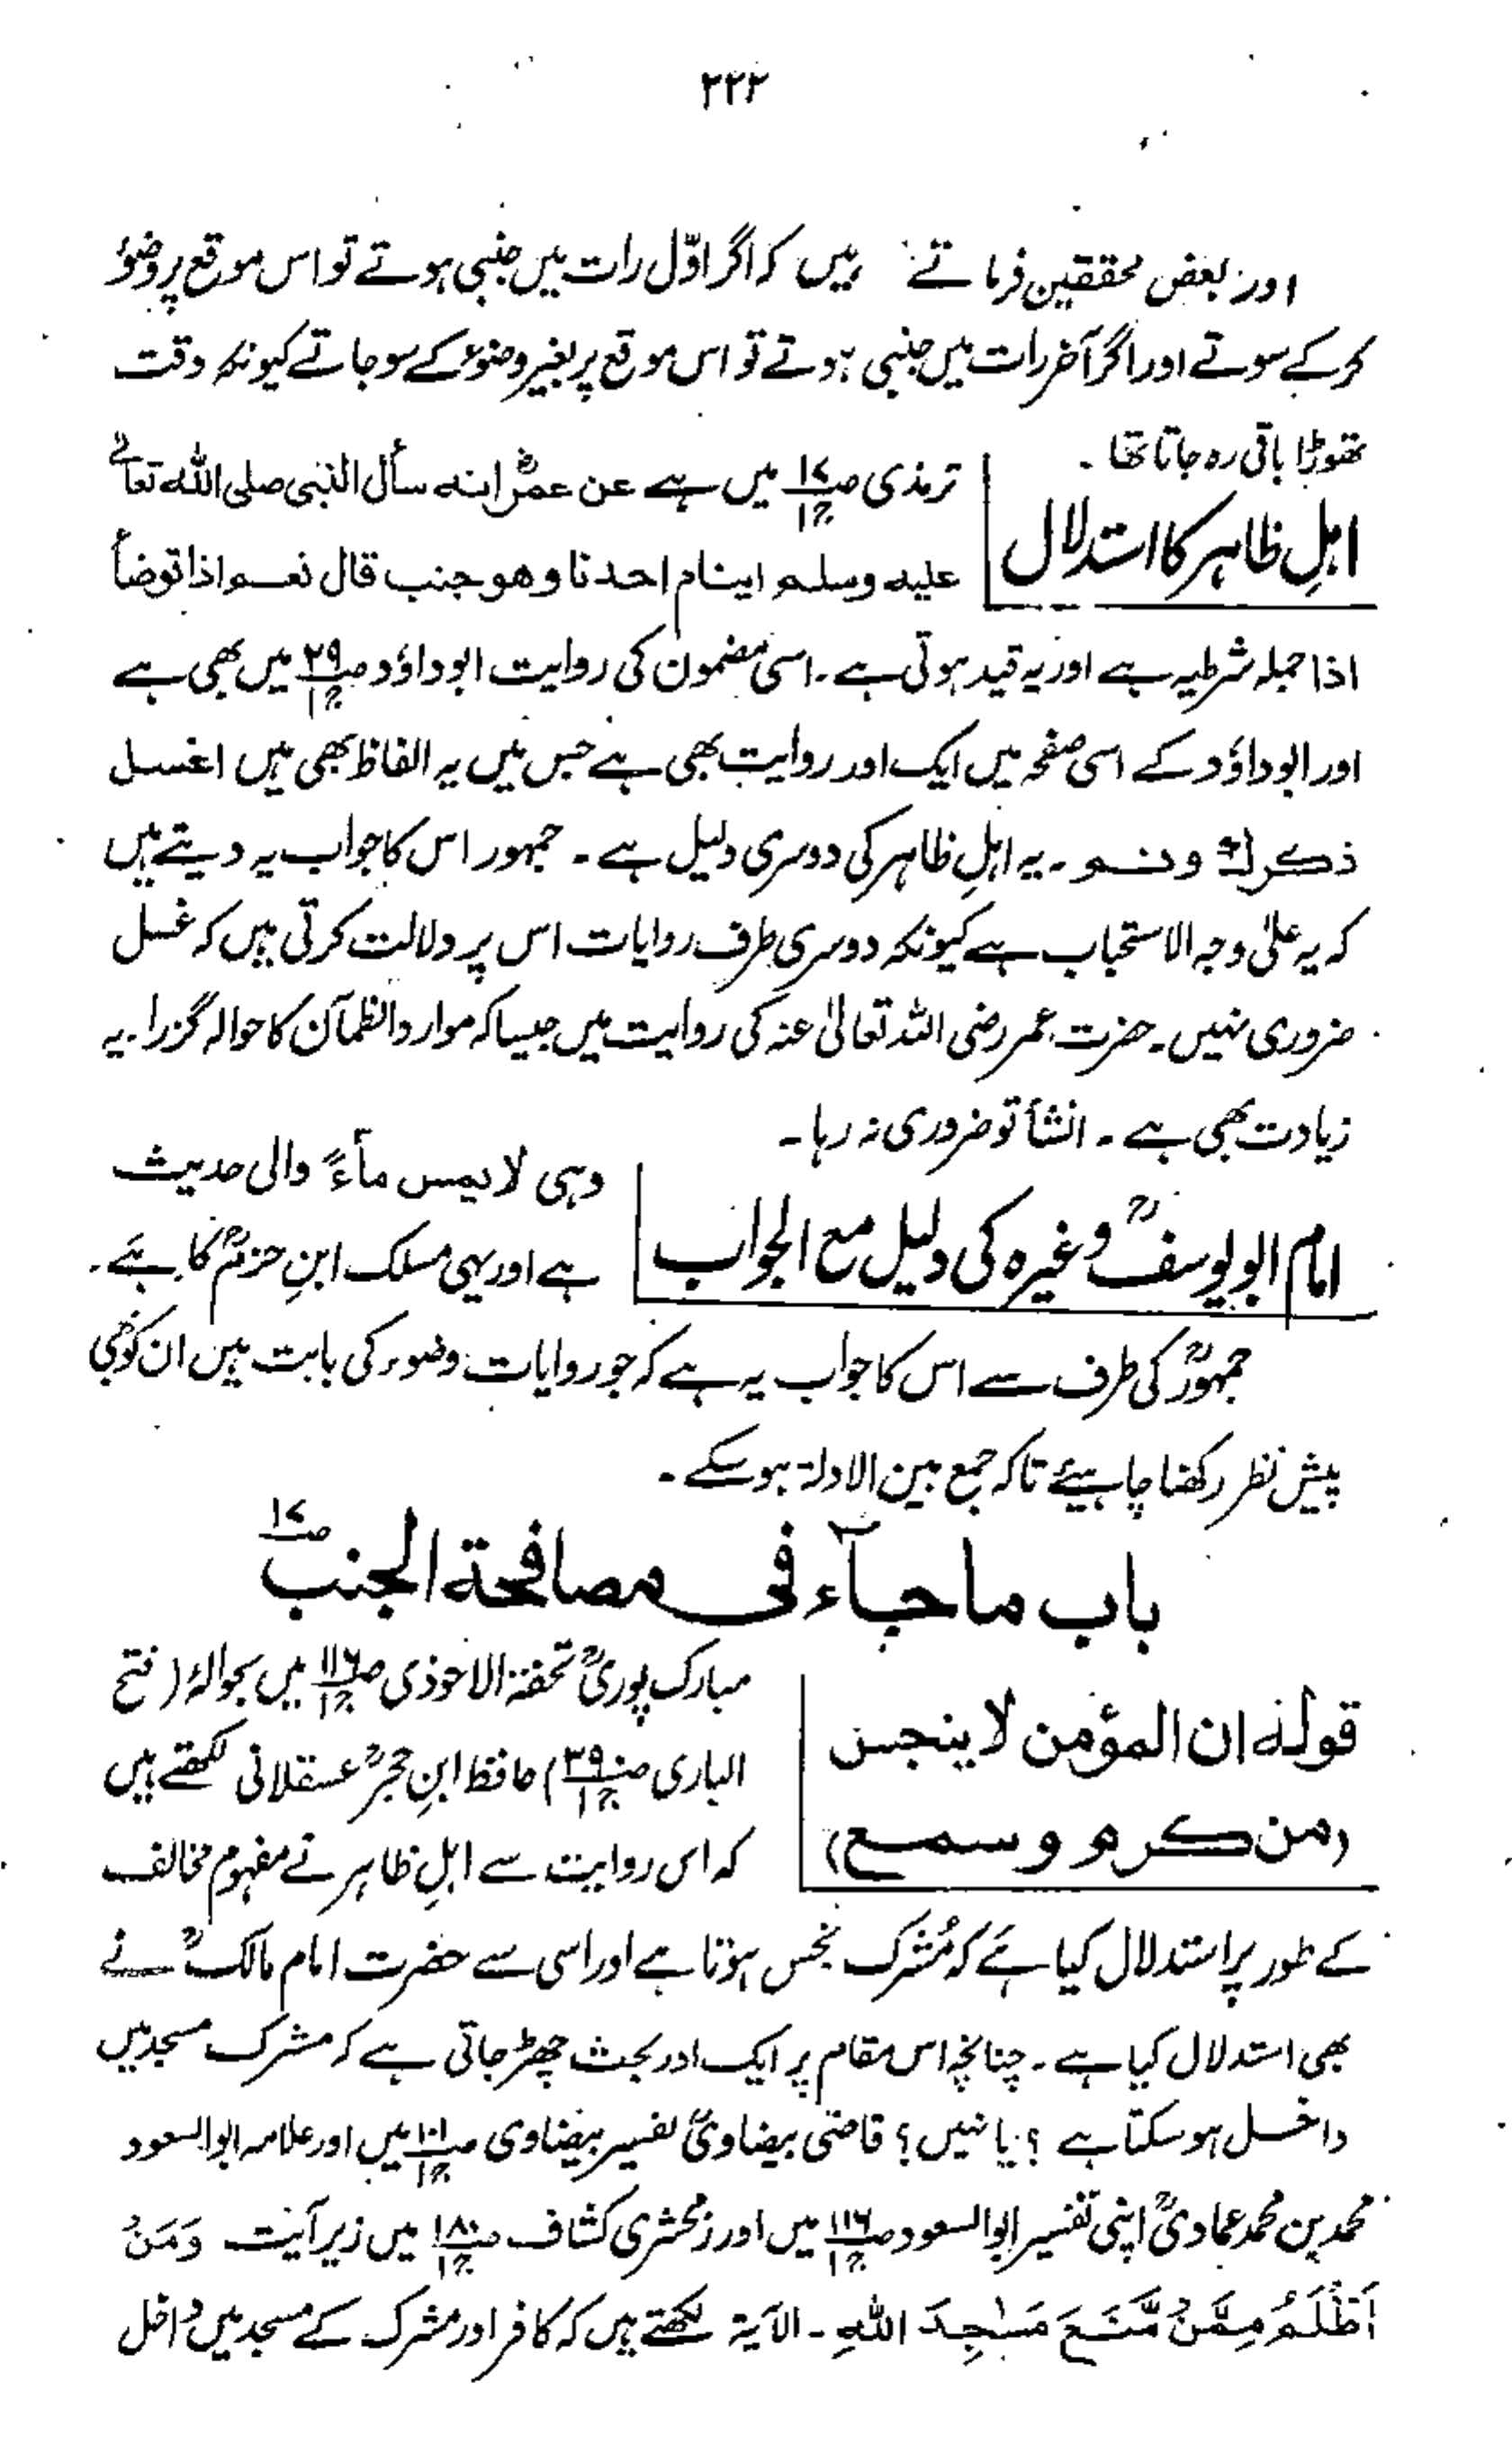 ۲۲۲
اور بعض محققین فرماتے ہیں کہ اگر اوّل رات میں جنبی ہوتے تو اس موقع پر وضوٴ
کرکے سوتے اور اگر آخر رات میں جنبی ہوتے تو اس موقع پر بغیر وضوٴ کے سو جاتے کیونکہ وقت
تھوڑا باقی رہ جاتا تھا۔
اہلِ ظاہر کا استدلال
ترمذی صـ۱۷ ج۱ میں ہے عن عمرؓ انہ سأل النبی صلی اللہ تعالٰے
علیہ وسلم اینام احدنا وھو جنب قال نعم اذا توضأ
اذا جملہ شرطیہ ہے اور یہ قید ہوتی ہے۔ اسی مضمون کی روایت ابوداؤد صـ۲۹ ج۱ میں بھی ہے
اور ابوداؤد کے اسی صفحہ میں ایک اور روایت بھی ہے جس میں یہ الفاظ بھی ہیں اغسل
ذکرک ونم۔ یہ اہلِ ظاہر کی دوسری دلیل ہے۔ جمہور اس کا جواب یہ دیتے ہیں
کہ یہ علیٰ وجہ الاستحباب ہے کیونکہ دوسری طرف روایات اس پر دلالت کرتی ہیں کہ غسل
ضروری نہیں۔ حضرت عمر رضی اللہ تعالیٰ عنہ کی روایت میں جیسا کہ موارد الظمآن کا حوالہ گزرا۔ یہ
زیادت بھی ہے۔ انشأ تو ضروری نہ رہا۔
امام ابو یوسفؒ وغیرہ کی دلیل مع الجواب
وہی لا یمس مآءً والی حدیث
ہے اور یہی مسلک ابنِ حزمؒ کا ہے۔
جمہورؒ کی طرف سے اس کا جواب یہ ہے کہ جو روایات وضوء کی بابت ہیں ان کو بھی
پیش نظر رکھنا چاہیئے تاکہ جمع بین الادلة ہو سکے۔
باب ما جآء فی مصافحة الجنب صـ۱۷
قولہ ان المؤمن لا ینجس
(من کرم وسمع)
مبارک پوریؒ تحفة الاحوذی صـ۱۱۶ ج۱ میں بحوالہٴ (فتح
الباری صـ۳۹ ج۱) حافظ ابنِ حجرؒ عسقلانی لکھتے ہیں
کہ اس روایت سے اہلِ ظاہر نے مفہوم مخالف
کے طور پر استدلال کیا ہے کہ مُشرک نجس ہوتا ہے اور اسی سے حضرت امام مالکؒ نے
بھی استدلال کیا ہے۔ چنانچہ اس مقام پر ایک اور بحث چھڑ جاتی ہے کہ مشرک مسجد میں
داخل ہو سکتا ہے؟ یا نہیں؟ قاضی بیضاویؒ تفسیر بیضاوی صـ۱۰۱ ج۱ میں اور علامہ ابوالسعود
محمد بن محمد عمادیؒ اپنی تفسیر ابوالسعود صـ۱۱۶ ج۱ میں اور زمحشری کشاف صـ۱۸۰ ج۱ میں زیر آیت وَمَنْ
اَظْلَمُ مِمَّنْ مَّنَعَ مَسٰجِدَ اللّٰہِ۔ الآیة لکھتے ہیں کہ کافر اور مشرک کے مسجد میں داخل